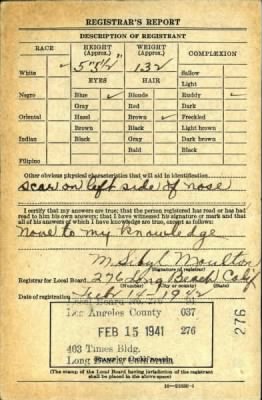 REGISTRAR'S REPORT
DESCRIPTION OF REGISTRANT
RACE HEIGHT (Approx.) WEIGHT (Approx.) COMPLEXION
White ✓ 5' 5½" 132 Sallow
EYES HAIR Light
Negro Blue ✓ Blonde Ruddy ✓
Gray Red Dark
Oriental Hazel Brown ✓ Freckled
Brown Black Light brown
Indian Black Gray Dark brown
Bald Black
Filipino
Other obvious physical characteristics that will aid in identification
scar on left side of nose
I certify that my answers are true; that the person registered has read or has had
read to him his own answers; that I have witnessed his signature or mark and that
all of his answers of which I have knowledge are true, except as follows:
None to my knowledge
M. Sibyl Moulton
(Signature of registrar)
Registrar for Local Board 276 Long Beach Calif
(Number) (City or county) (State)
Date of registration Feb 14 - 1942
Local Board No. 276
Los Angeles County 037
FEB 15 1941 276
403 Times Bldg.
Long Beach, California
(STAMP OF LOCAL BOARD)
(The stamp of the Local Board having jurisdiction of the registrant
shall be placed in the above space)
276